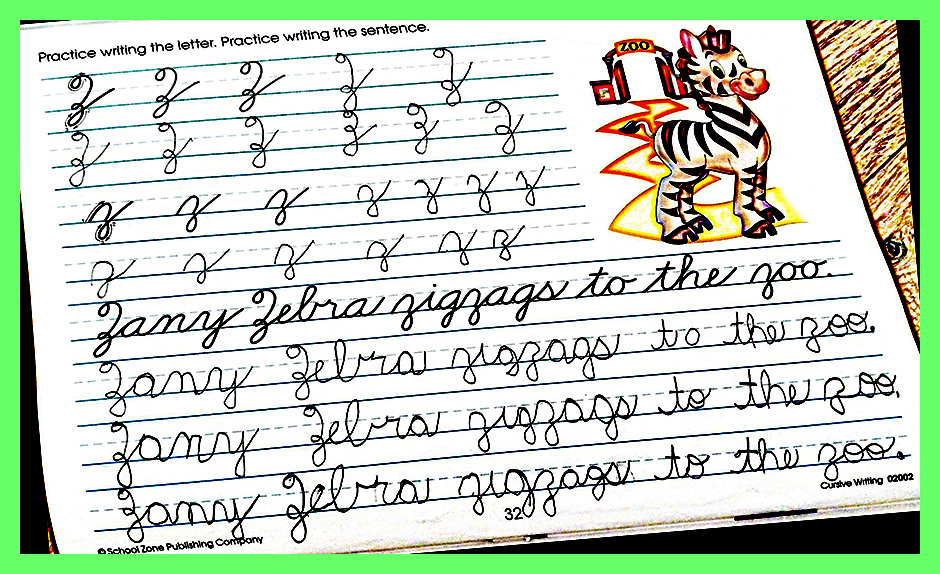 Practice writing the letter. Practice writing the sentence.
ZOO
Z Z Z Z Z
Z Z Z Z Z Z
z z z z z z z
z z z z z z
Zany Zebra zigzags to the zoo.
Zany Zebra zigzags to the zoo.
Zany Zebra zigzags to the zoo.
Zany Zebra zigzags to the zoo.
Cursive Writing 02002
32
© School Zone Publishing Company